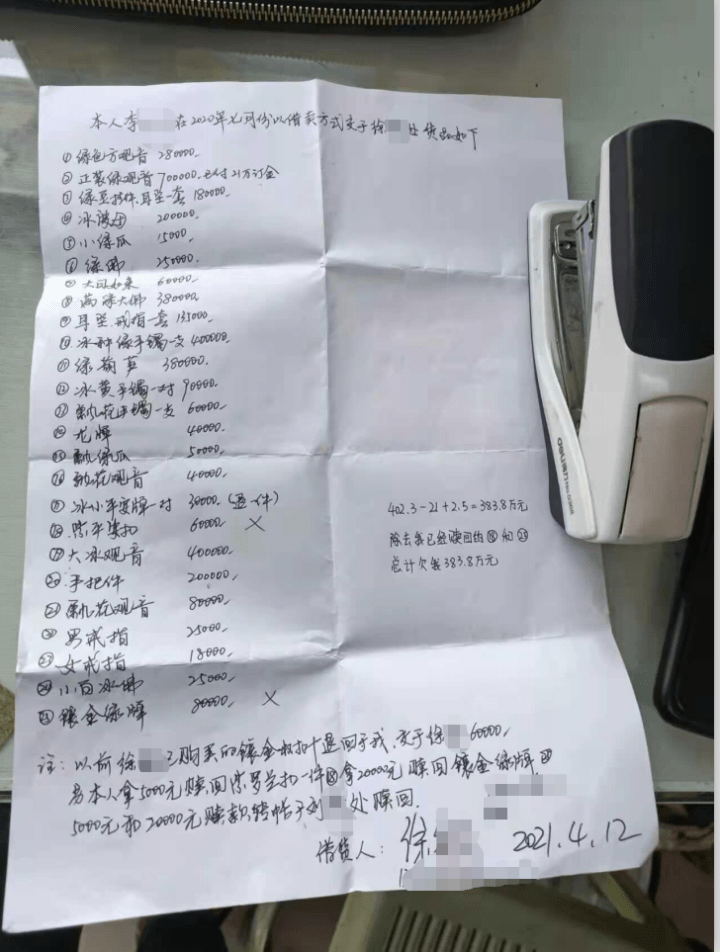 本人李 在2020年七月份以借卖方式交于徐 处货品如下
① 绿色方观音 280000.
② 正装绿观音 700000.已付21万订金
③ 绿豆挂件.耳坠一套 180000.
④ 冰 200000.
⑤ 小绿瓜 15000.
⑥ 绿佛 250000.
⑦ 大日如来 60000.
⑧ 满绿大佛 380000.
⑨ 耳坠.戒指一套 135000.
⑩ 冰种绿手镯一支 400000.
⑪ 绿 380000.
⑫ 冰黄手镯一对 90000.
⑬ 飘花手镯一支 60000.
⑭ 龙牌 40000.
⑮ 飘绿瓜 50000.
⑯ 飘花观音 40000.
⑰ 冰小平安牌一对 30000.(退一件)
⑱ 60000. ×
⑲ 大冰观音 400000.
⑳ 手把件 200000.
㉑ 飘花观音 80000.
㉒ 男戒指 25000.
㉓ 女戒指 18000.
㉔ 小白冰佛 25000.
㉕ 镶金绿牌 80000. ×
402.3-21+2.5=383.8万元
除去我已经赎回的⑱和㉕
总计欠我383.8万元
注:以前徐 已购买的镶金 扣退回于我.交于徐 60000.
另本人拿5000元赎回紫罗兰扣一件⑱拿20000元赎回镶金绿牌㉕
5000元和20000元赎款转帐于刘 处赎回.
借货人: 徐 2021.4.12
deli得力